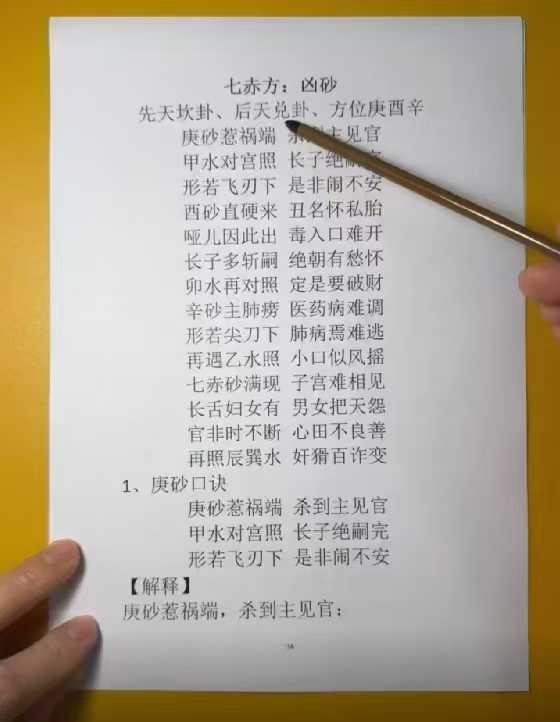 七赤方：凶砂
先天坎卦、后天兑卦、方位庚酉辛
庚砂惹祸端 杀到主见官
甲水对宫照 长子绝嗣完
形若飞刃下 是非闹不安
酉砂直硬来 丑名怀私胎
哑儿因此出 毒入口难开
长子多斩嗣 绝朝有愁怀
卯水再对照 定是要破财
辛砂主肺痨 医药病难调
形若尖刀下 肺病焉难逃
再遇乙水照 小口似风摇
七赤砂满现 子宫难相见
长舌妇女有 男女把天怨
官非时不断 心田不良善
再照辰巽水 奸猾百诈变
1、庚砂口诀
庚砂惹祸端 杀到主见官
甲水对宫照 长子绝嗣完
形若飞刃下 是非闹不安
【解释】
庚砂惹祸端，杀到主见官；